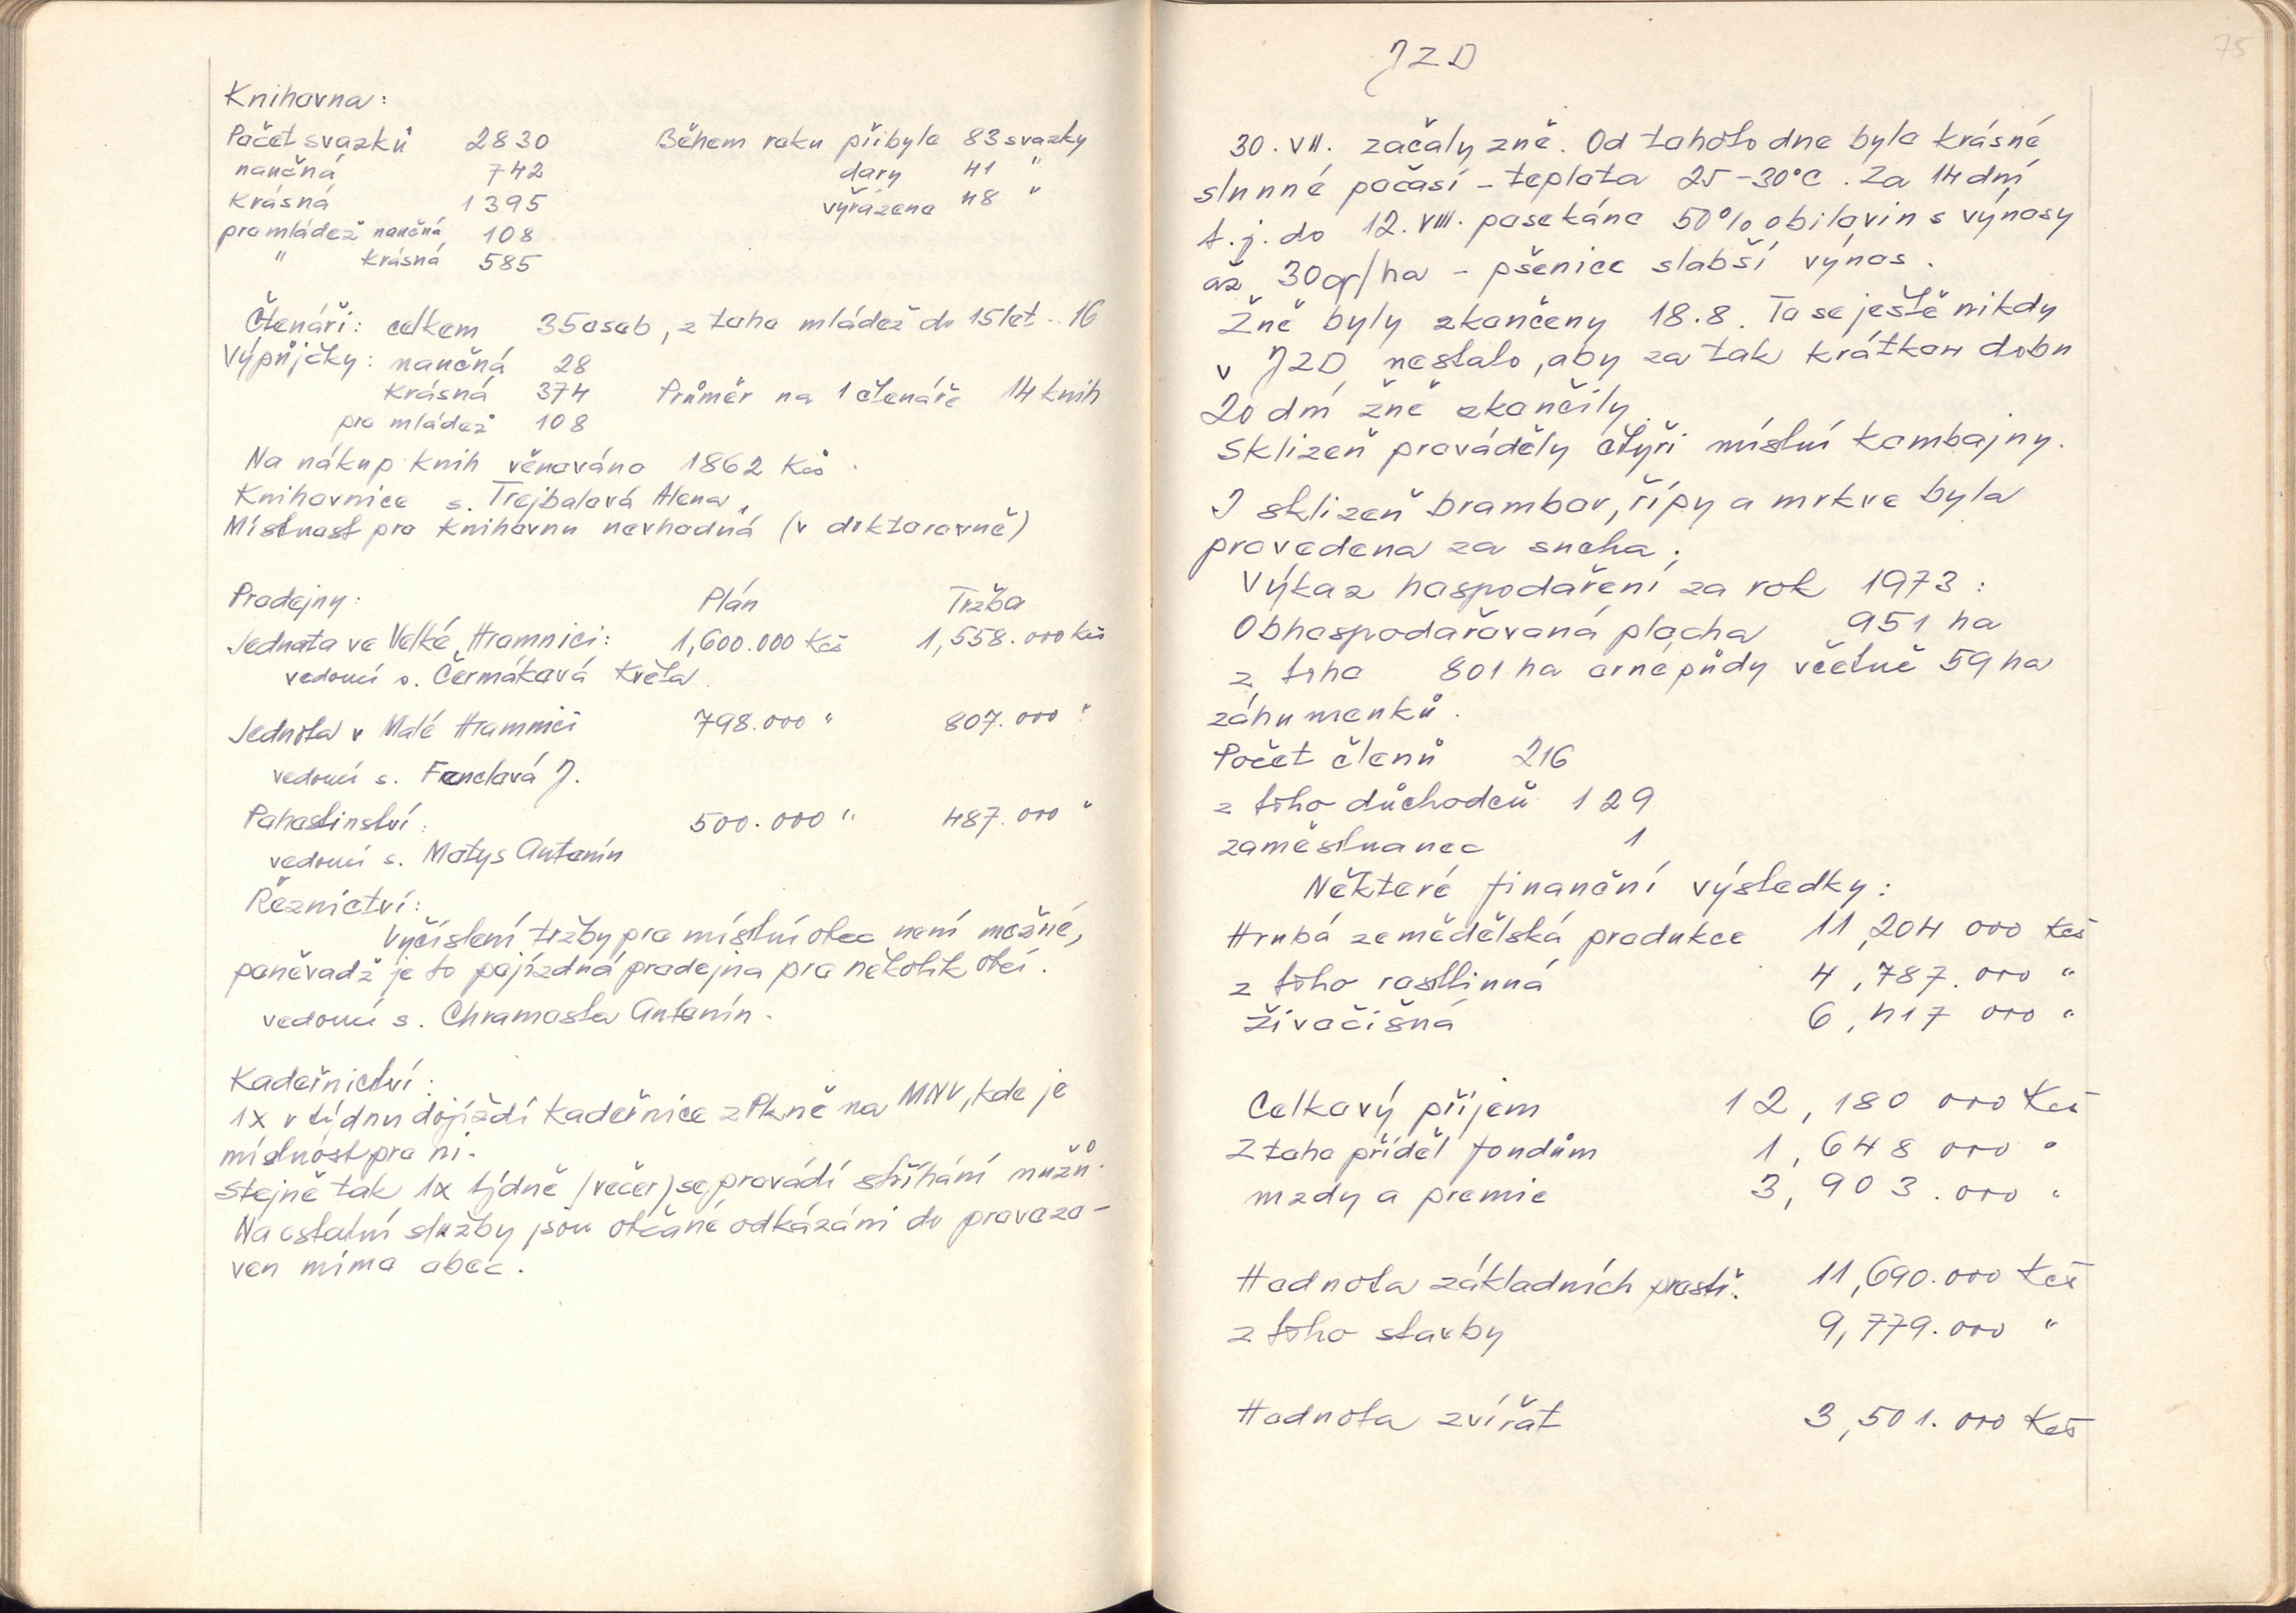 Knihovna:
Počet svazků 2830 Během roku přibylo 83 svazky
naučná 742 dary 41 "
Krásná 1395 vyřazeno 48 "
pro mládež naučná 108
" Krásná 585
Čtenáři: celkem 35 osob, z toho mládež do 15 let - 16
Výpůjčky: naučná 28
Krásná 374 Průměr na 1 čtenáře 14 knih
pro mládež 108
Na nákup knih věnováno 1862 Kčs.
Knihovnice s. Trejbalová Alena,
Místnost pro knihovnu nevhodná (v doktorovně)
Prodejny: Plán Tržba
Jednota ve Velké Hromnici: 1,600.000 Kčs 1,558.000 Kčs
vedoucí s. Čermáková Květa
Jednota v Malé Hromnici 798.000 " 807.000 "
vedoucí s. Fenclová J.
Pohostinství: 500.000 " 487.000 "
vedoucí s. Motys Antonín
Řeznictví:
Vyčíslení tržby pro místní obec není možné,
poněvadž je to pojízdná prodejna pro několik obcí.
vedoucí s. Chromasta Antonín.
Kadeřnictví:
1x v týdnu dojíždí kadeřnice z Plzně na MNV, kde je
místnost pro ni.
Stejně tak 1x týdně (večer) se provádí stříhání mužů.
Na ostatní služby jsou občané odkázáni do provozo-
ven mimo obec.
75
JZD
30. VII. začaly žně. Od tohoto dne bylo krásné
slunné počasí - teplota 25-30°C. Za 14 dní
t.j. do 12. VIII. posekáno 50% obilovin s výnosy
až 30 q/ha - pšenice slabší výnos.
Žně byly skončeny 18.8. To se ještě nikdy
v JZD nestalo, aby za tak krátkou dobu
20 dní žně skončily.
Sklizeň prováděly čtyři místní kombajny.
I sklizeň brambor, řípy a mrkve byla
provedena za sucha.
Výkaz hospodaření za rok 1973:
Obhospodařovaná plocha 951 ha
z toho 801 ha orné půdy včetně 59 ha
záhumenků.
Počet členů 216
z toho důchodců 129
zaměstnanec 1
Některé finanční výsledky:
Hrubá zemědělská produkce 11,204 000 Kčs
z toho rostlinná 4,787.000 "
živočišná 6,417 000 "
Celkový příjem 12,180 000 Kčs
Z toho příděl fondům 1,648 000 "
mzdy a premie 3,903.000 "
Hodnota základních prostř. 11,690.000 Kčs
z toho stavby 9,779.000 "
Hodnota zvířat 3,501.000 Kčs